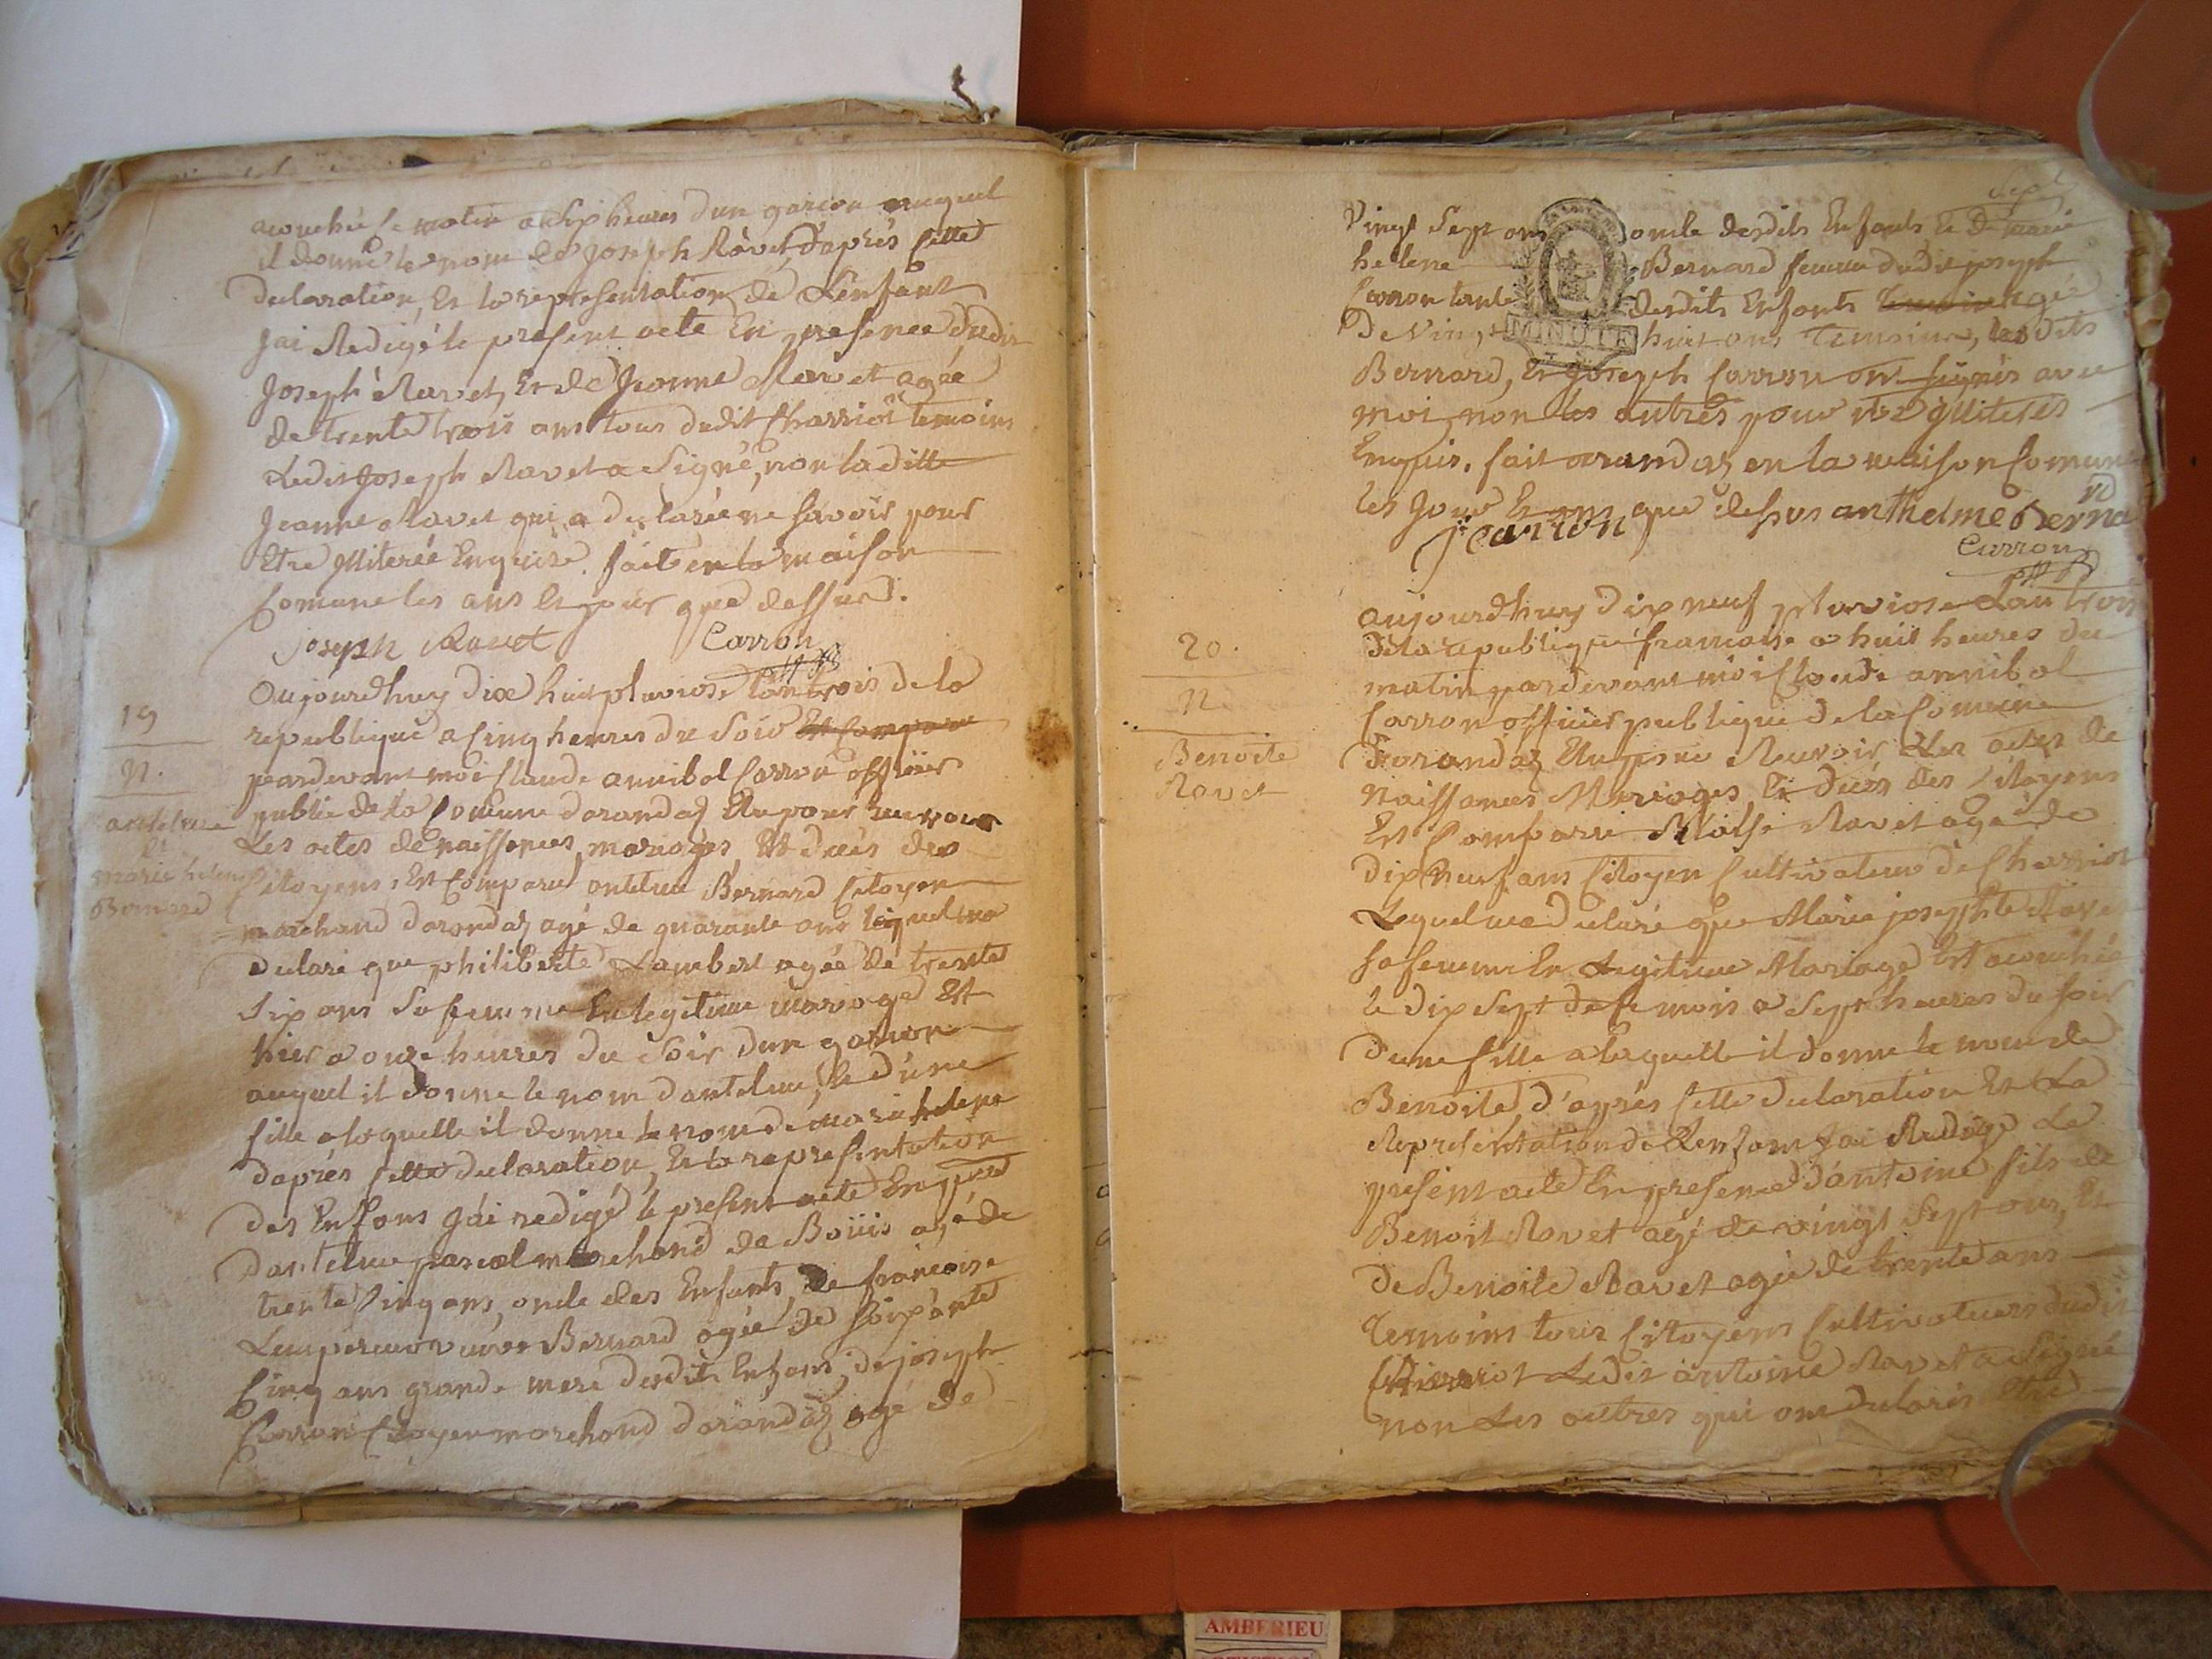 acouchée ce matin a Six heures dun garcon auquel
il donne le nom de Joseph Ravet, d'après Cette
declaration, Et la representation de L'enfant
Jai Redigé le present acte En presence dudit
Joseph Ravet, Et de Jeanne Ravet agée
de trente trois ans tous dudit Charriot temoins
Ledit Joseph Ravet a Signé, non laditte
Jeanne Ravet qui a declarée ne Savoir pour
Etre illiterée Enquise. fait en la maison
Comune les ans Et jour que dessus.
joseph Ravet Carron
19
N.
antelme
Et
marie helene
Bernard
Aujourdhuy dix huit pluviose L'an trois de la
republique a Cinq heures du Soir Est Comparu
pardevant moi Claude annibal Carron officier
public de la Comune darandaz Elu pour recevoir
Les actes de naissances, mariages, Et decès des
Citoyens, Est Comparu antelme Bernard Citoyen
marchand darandaz agé de quarante ans lequel ma
declaré que philiberte Lambert agée de trente
Six ans Sa femme En legitime mariage Est
hier a onze heures du Soir dun garcon
auquel il donne le nom dantelme, Et d'une
fille a laquelle il donne le nom de marie helene
daprès Cette declaration, Et la representation
des Enfans Jái redigé le present acte En
dantelme pascal marchand de Boüis agé de
trente Cinq ans, oncle des Enfants, de francoise
Lempereur veuve Bernard agée de Soixante
Cinq ans grande mere desdits Enfans, de joseph
Carron Citoyen marchand darandaz agé de
Sept
Vingt Sept ans oncle desdits Enfants Et De marie
helene Bernard femme dudit joseph
Carron tante desdits Enfants temoin agée
De Vingt huit ans temoins, lesdits
MINUTE
Bernard, Et Joseph Carron ont signés avec
moi non les autres pour etre illiterés
Enquis. fait arandaz en la maison Comune
les Jour Et ans que dessus anthelme Bernard
J Carron
Carron
20.
N.
Benoite
Ravet
Aujourdhuy dix neuf pluviose L'an trois
de la republique francaise a huit heures du
matin pardevant moi Claude annibal
Carron officier publique de la Comune
darandaz Elu pour Recevoir Les actes de
Naissances Mariages Et Decès des Citoyens
Est Comparu Ravet agé de
dix Neuf ans Citoyen Cultivateur de Charriot
Lequel ma declaré que Marie josephte Ravet
sa femme En Legitime Mariage Est acouchée
le dix Sept de ce mois a Sept heures du Soir
d'une fille a laquelle il donne le nom de
Benoite d'après Cette declaration Et La
Representation de Lenfant Jai Redigé Le
present acte En presence d'antoine fils de
Benoit Ravet agé de vingt Sept ans, Et
de Benoite Ravet agée de trente ans
temoins tous Citoyens Cultivateurs dudit
Charriot Ledit antoine Ravet a Signé
non Les autres qui ont declarés Etre
AMBERIEU